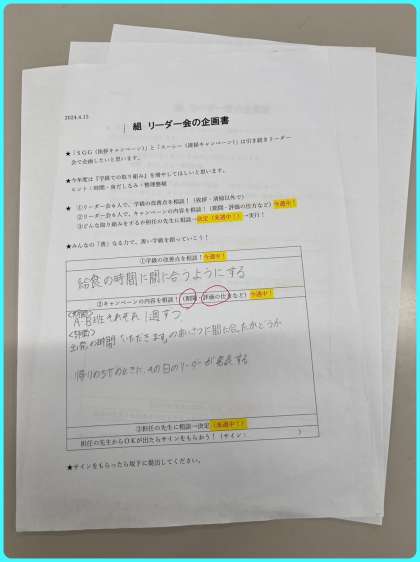 2024.4.15
組 リーダー会の企画書
★「ＳＧＧ（挨拶キャンペーン）」と「スーシー（清掃キャンペーン）」は引き続きリーダー
会で企画したいと思います。
★今年度は『学級での取り組み』を増やしてほしいと思います。
ヒント：時間・身だしなみ・整理整頓
★ ①リーダー会６人で、学級の改善点を相談！（挨拶・清掃以外で） 今週中！
②リーダー会６人で、キャンペーンの内容を相談！（期間・評価の仕方など）今週中！
③どんな取り組みをするか担任の先生に相談→決定（来週中！）→実行！
★みんなの「善」なる力で、善い学級を創っていこう！
①学級の改善点を相談！今週中！
給食の時間に間に合うようにする
②キャンペーンの内容を相談！（期間・評価の仕方など）今週中！
<期間>
A・B班それぞれ1週ずつ
<評価>
「いただきます」のあいさつに間に合ったかどうか
帰りの会のときに、その日のリーダーが発表する
③担任の先生に相談→決定（来週中！）
担任の先生からＯＫが出たらサインをもらおう！（サイン： ）
★サインをもらったら坂下に提出してください。